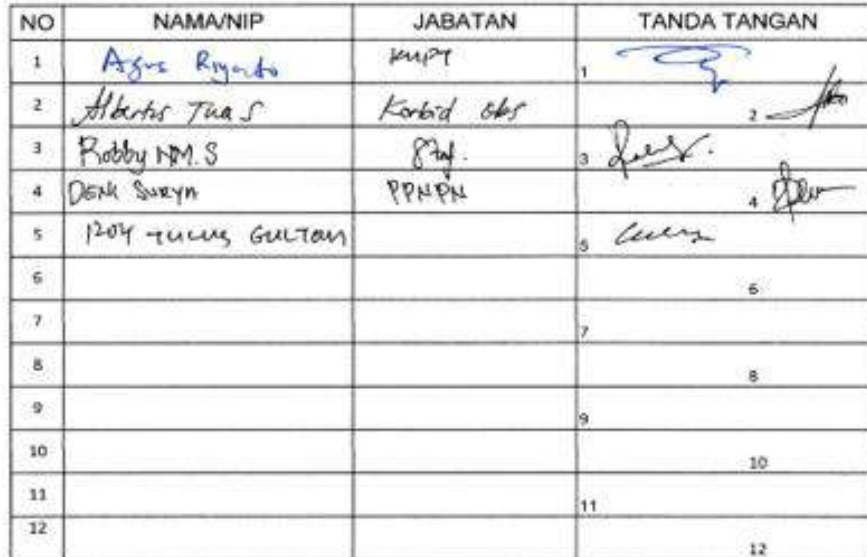 NO NAMA/NIP JABATAN TANDA TANGAN
1 Agus Riyanto KUPT 1
2 Albertus Tua S Korbid Obs 2
3 Robby NM.S Staf. 3
4 DENI SURYA PPNPN 4
5 GULTOM 5
6 6
7 7
8 8
9 9
10 10
11 11
12 12